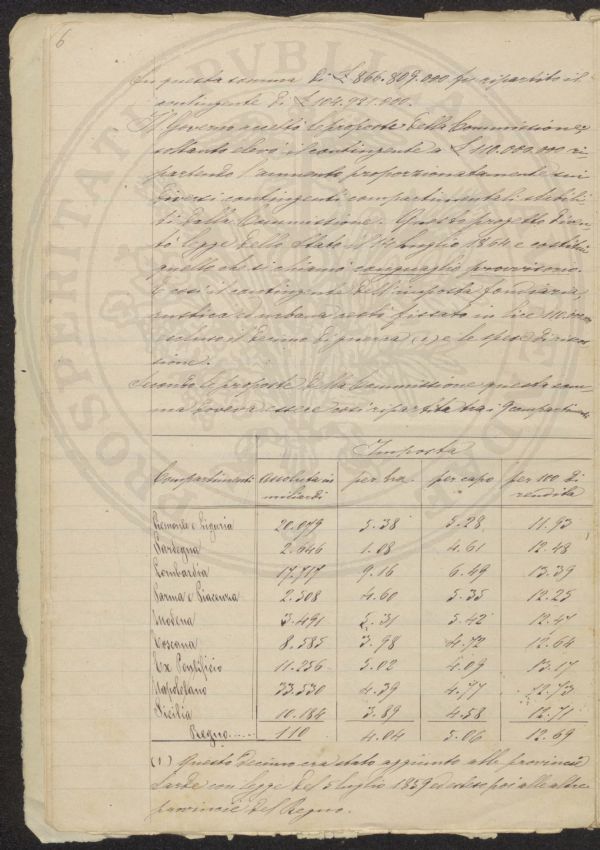 6
In questa somma di £ 866.809.000 fu ripartito il
contingente di £ 104.981.000.
Il Governo accettò le proposte della Commissione e
soltanto elevò il contingente a £ 110.000.000 ri-
partendo l'aumento proporzionatamente sui
diversi contingenti compartimentali stabili-
ti dalla Commissione. Questo progetto diven-
tò legge dello Stato il 14 luglio 1864 e costituì
quello che si chiamò conguaglio provvisorio.
E così il contingente dell'imposta fondiaria,
rustica ed urbana restò fissato in lire
escluso il decimo di guerra (1) e le spese di riscos-
sione.
Secondo le proposte della Commissione questa som-
ma doveva essere così ripartita tra i 9 compartimenti
Imposta
Compartimenti assoluta in per ha. per capo per 100 di
miliardi rendita
Piemonte e Liguria 20.079 5.38 5.28 11.93
Sardegna 2.646 1.08 4.61 12.48
Lombardia 17.717 9.16 6.49 13.39
Parma e Piacenza 2.508 4.60 5.35 12.25
Modena 3.491 5.31 5.42 12.47
Toscana 8.585 3.98 4.72 12.64
Ex Pontificio 11.256 5.02 4.09 13.17
Napoletano 33.530 4.39 4.77 12.73
Sicilia 10.184 3.89 4.58 12.71
Regno...... 110 4.04 5.06 12.69
(1) Questo decimo era stato aggiunto alle provincie
sarde con legge del 5 luglio 1859 ed esteso poi alle altre
provincie del Regno.